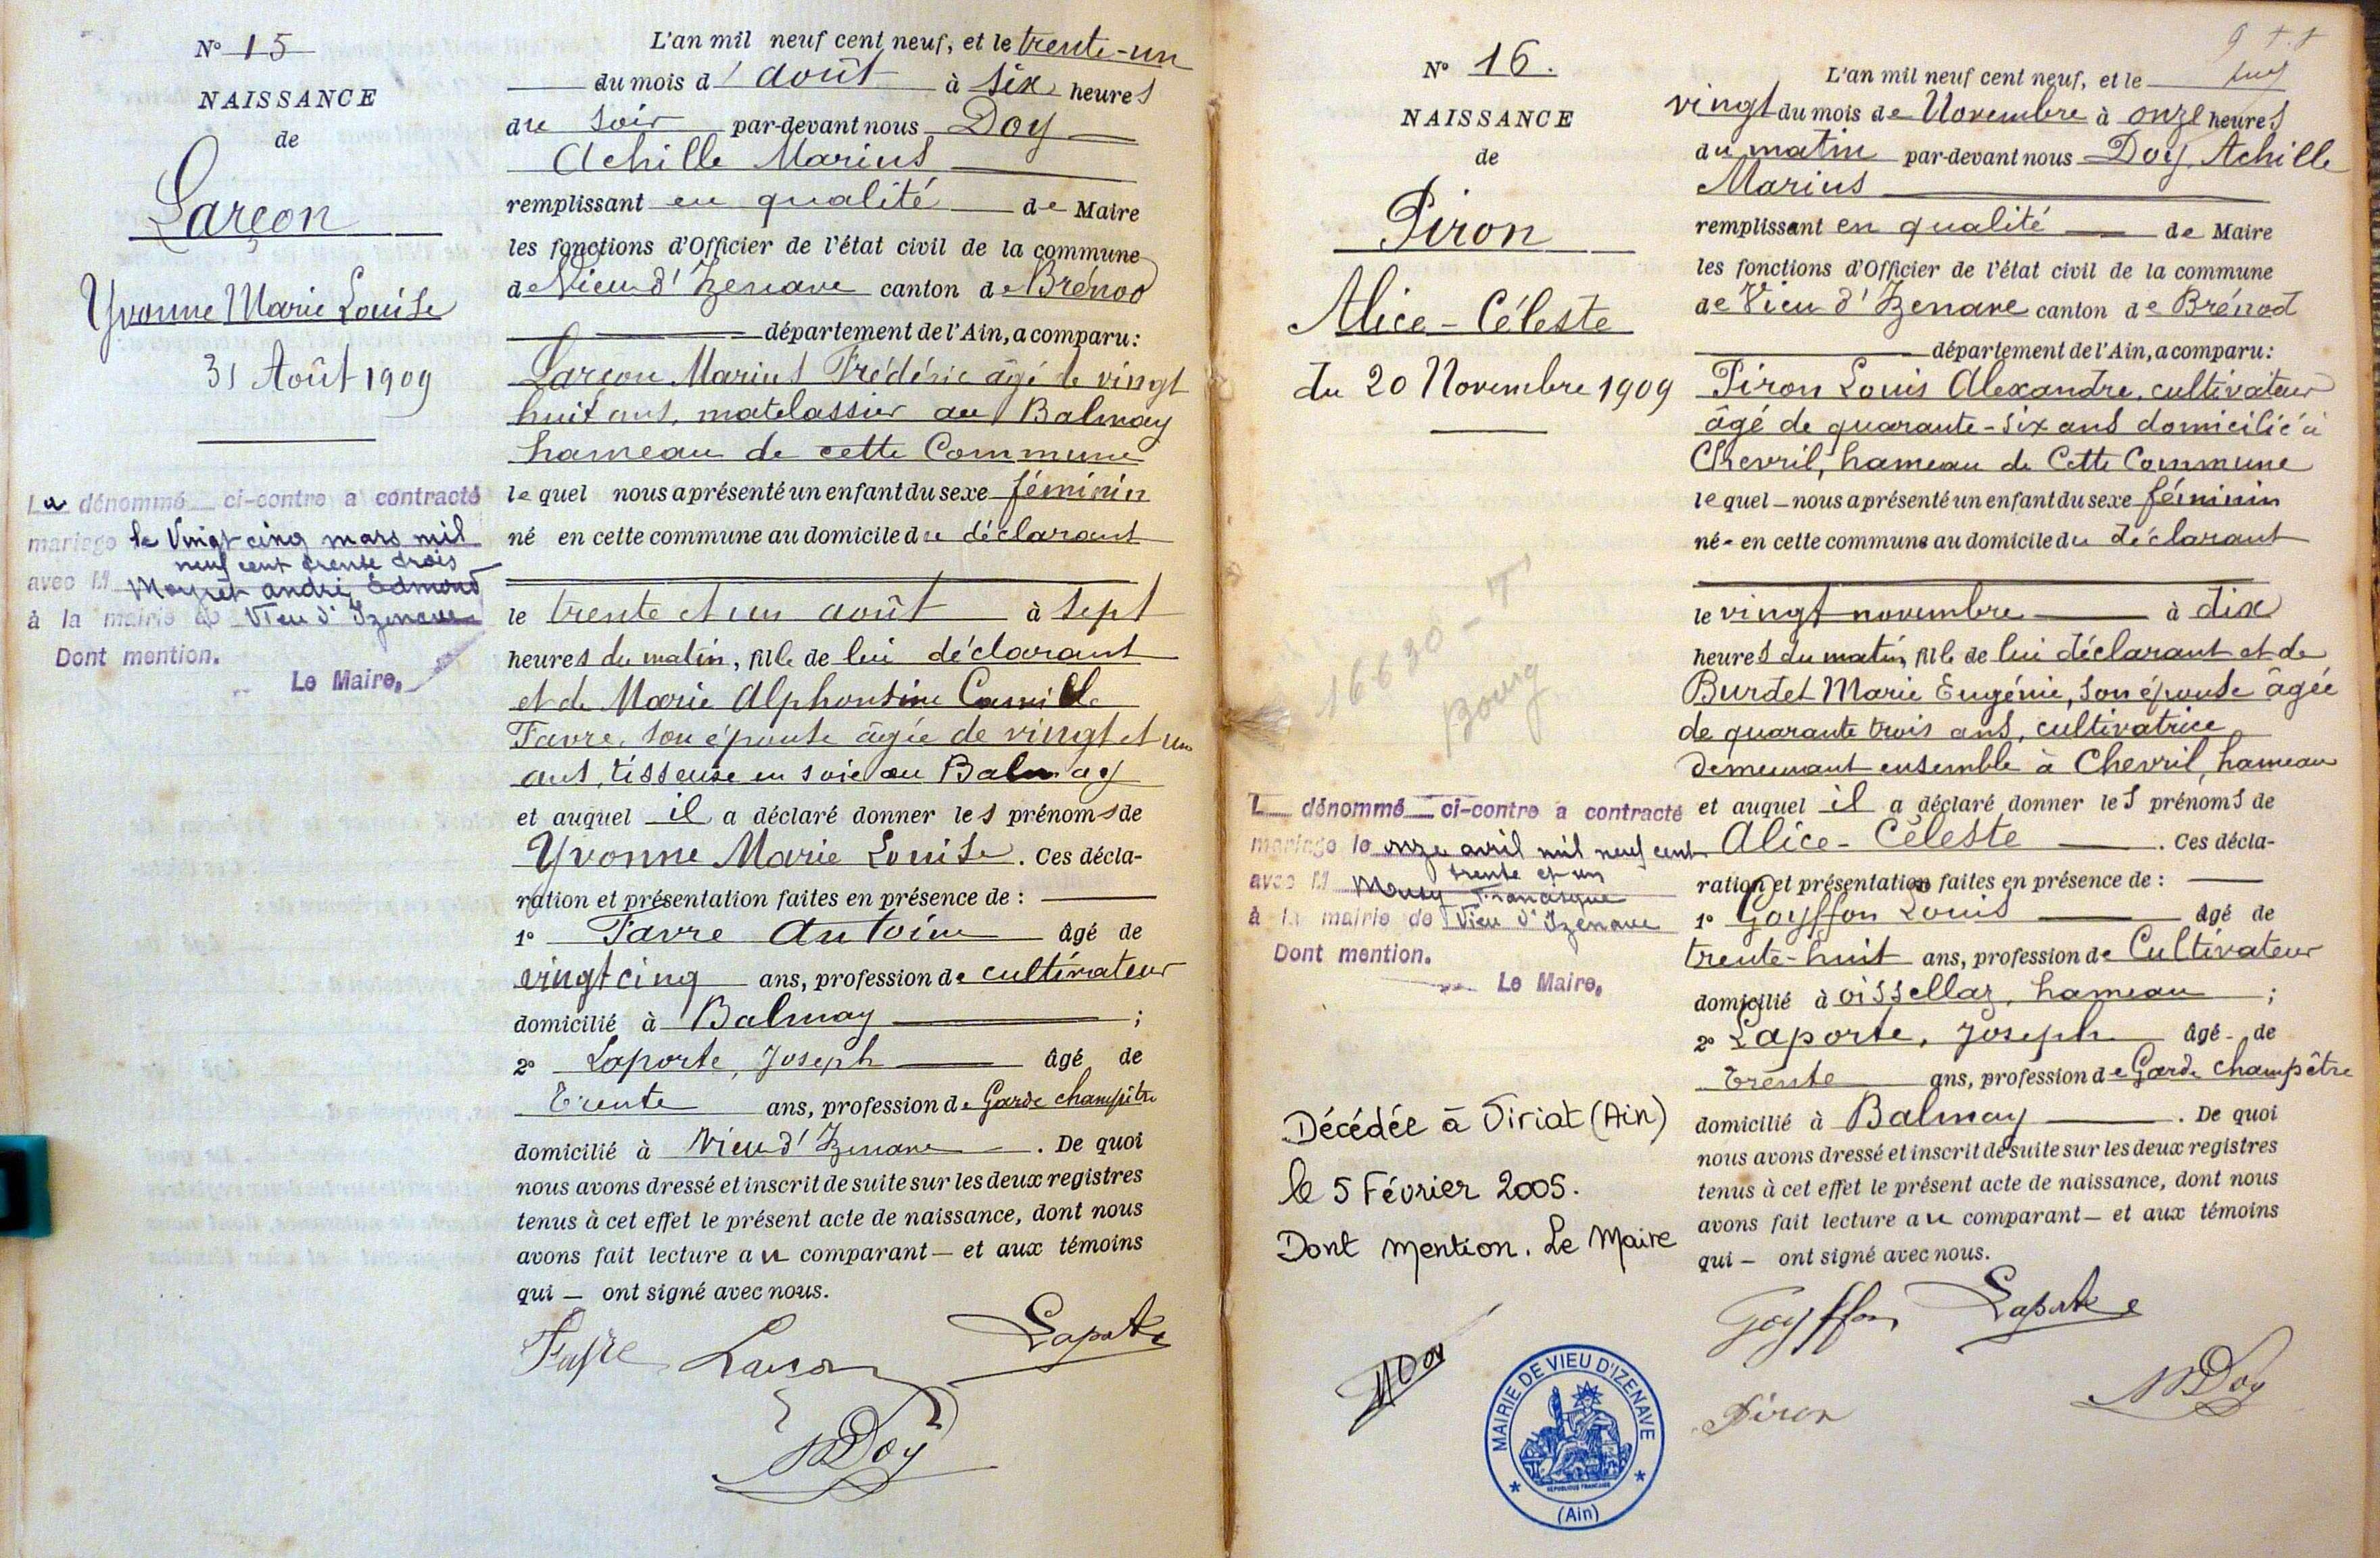 N° 15
NAISSANCE
de
Larçon
Yvonne Marie Louise
31 Août 1909
La dénommé ci-contre a contracté
mariage le Vingt cinq mars mil
neuf cent trente trois
avec M André Edmond
à la mairie de Vieu d'Izenave
Dont mention.
Le Maire,
L'an mil neuf cent neuf, et le trente-un
du mois d'août à six heures
du soir par-devant nous Doy
Achille Marius
remplissant en qualité de Maire
les fonctions d'Officier de l'état civil de la commune
de Vieu d'Izenave canton de Brénod
département de l'Ain, a comparu:
Larçon Marius Frédéric âgé de vingt
huit ans, matelassier au Balmay
hameau de cette Commune
lequel nous a présenté un enfant du sexe féminin
né en cette commune au domicile du déclarant
le trente et un août à sept
heures du matin, fille de lui déclarant
et de Marie Alphonsine Camille
Favre, son épouse âgée de vingt et un
ans, tisseuse en soie au Balmay
et auquel il a déclaré donner les prénoms de
Yvonne Marie Louise. Ces décla-
ration et présentation faites en présence de :
1° Favre Antoine âgé de
vingt cinq ans, profession de cultivateur
domicilié à Balmay ;
2° Laporte, Joseph âgé de
trente ans, profession de Garde champêtre
domicilié à Vieu d'Izenave. De quoi
nous avons dressé et inscrit de suite sur les deux registres
tenus à cet effet le présent acte de naissance, dont nous
avons fait lecture au comparant — et aux témoins
qui — ont signé avec nous.
Favre Larçon Laporte
Doy
N° 16.
NAISSANCE
de
Piron
Alice-Céleste
du 20 Novembre 1909
16630-T
Bourg
L dénommé ci-contre a contracté
mariage le onze avril mil neuf cent
trente et un
avec M Francisque
à la mairie de Vieu d'Izenave
Dont mention.
Le Maire,
Décédée à Viriat (Ain)
le 5 Février 2005.
Dont mention. Le Maire
MAIRIE DE VIEU D'IZENAVE
RÉPUBLIQUE FRANÇAISE
(Ain)
L'an mil neuf cent neuf, et le
vingt du mois de Novembre à onze heures
du matin par-devant nous Doy, Achille
Marius
remplissant en qualité de Maire
les fonctions d'Officier de l'état civil de la commune
de Vieu d'Izenave canton de Brénod
département de l'Ain, a comparu:
Piron Louis Alexandre, cultivateur
âgé de quarante-six ans domicilié à
Chevril, hameau de Cette Commune
lequel — nous a présenté un enfant du sexe féminin
né - en cette commune au domicile du déclarant
le vingt novembre à dix
heures du matin, fille de lui déclarant et de
Burdet Marie Eugénie, son épouse âgée
de quarante trois ans, cultivatrice
demeurant ensemble à Chevril, hameau
et auquel il a déclaré donner les prénoms de
Alice-Céleste. Ces décla-
ration et présentation faites en présence de :
1° Goyffon Louis âgé de
trente-huit ans, profession de Cultivateur
domicilié à Oissellaz, hameau ;
2° Laporte, Joseph âgé - de
trente ans, profession de Garde champêtre
domicilié à Balmay. De quoi
nous avons dressé et inscrit de suite sur les deux registres
tenus à cet effet le présent acte de naissance, dont nous
avons fait lecture au comparant — et aux témoins
qui — ont signé avec nous.
Goyffon Laporte
Piron Doy